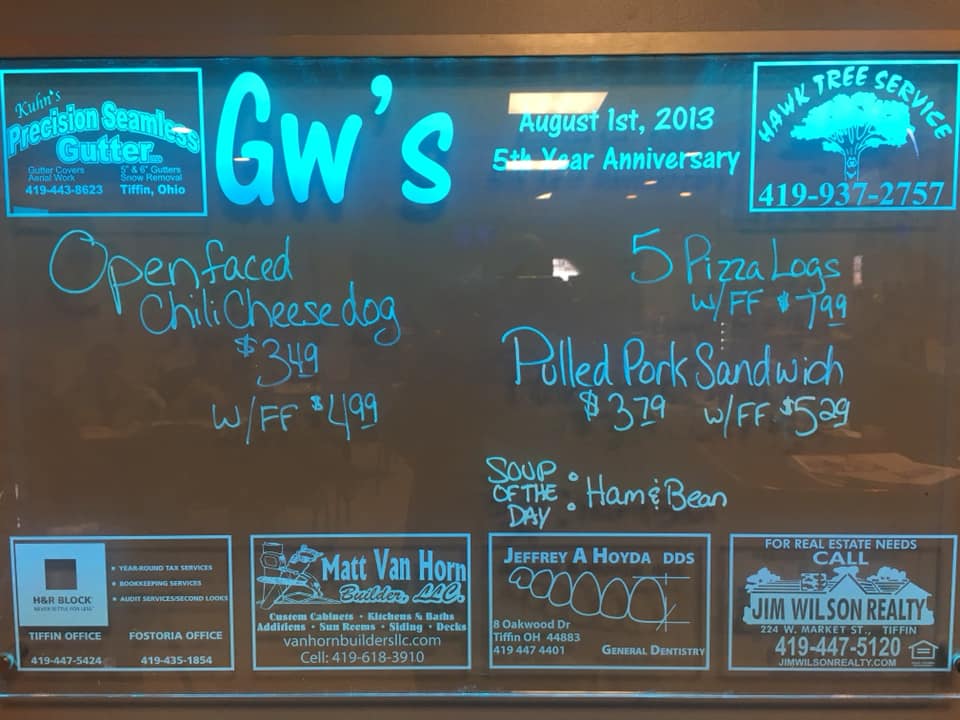 Kuhn's
Precision Seamless
Gutter
Gutter Covers
Aerial Work
419-443-8623
5" & 6" Gutters
Snow Removal
Tiffin, Ohio
GW's
August 1st, 2013
5th Year Anniversary
HAWK TREE SERVICE
419-937-2757
Open faced
Chili Cheese dog
$3.49
w/FF $4.99
5 Pizza Logs
w/FF $7.99
Pulled Pork Sandwich
$3.79 w/FF $5.29
SOUP
OF THE
DAY : Ham & Bean
H&R BLOCK
NEVER SETTLE FOR LESS
YEAR-ROUND TAX SERVICES
BOOKKEEPING SERVICES
AUDIT SERVICES/SECOND LOOKS
TIFFIN OFFICE
419-447-5424
FOSTORIA OFFICE
419-435-1854
MATT VAN HORN
Builder, LLC.
Custom Cabinets • Kitchens & Baths
Additions • Sun Rooms • Siding • Decks
vanhornbuildersllc.com
Cell: 419-618-3910
JEFFREY A HOYDA DDS
8 Oakwood Dr
Tiffin OH 44883
419 447 4401
GENERAL DENTISTRY
FOR REAL ESTATE NEEDS
CALL
JIM WILSON REALTY
224 W. MARKET ST., TIFFIN
419-447-5120
JIMWILSONREALTY.COM